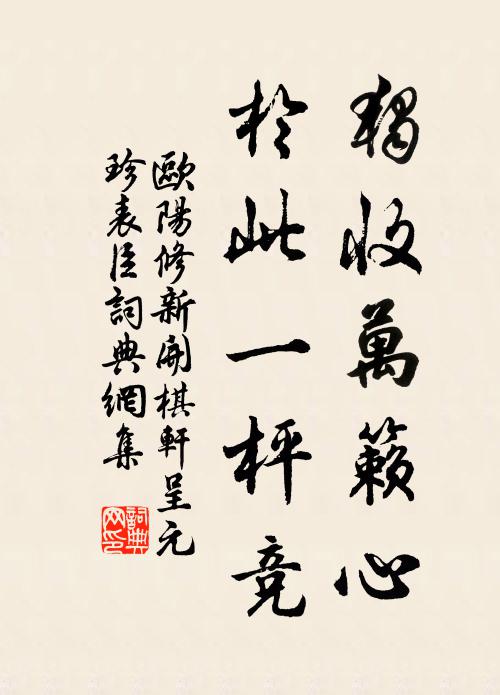 獨收萬籟心
於此一枰競
歐陽修新開棋軒呈元
珍表臣詞典網集
詞典
网印